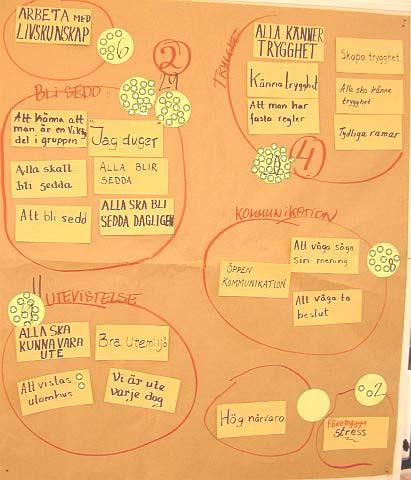 ARBETA MED
LIVSKUNSKAP
6
2
29
BLI SEDD
Att känna att
man är en viktig
del i gruppen
"Jag duger"
Alla skall
bli sedda
ALLA BLIR
SEDDA
Att bli sedd
ALLA SKA BLI
SEDDA DAGLIGEN
TRYGGHET
ALLA KÄNNER
TRYGGHET
Skapa trygghet
Känna trygghet
Alla ska känna
trygghet
Att man har
fasta regler
Tydliga ramar
4
KOMMUNIKATION
Att våga säga
sin mening
ÖPPEN
KOMMUNIKATION
8
Att våga ta
beslut
UTEVISTELSE
ALLA SKA
KUNNA VARA
UTE
Bra Utemiljö
Att vistas
utomhus
Vi är ute
varje dag
Hög närvaro
2
Förebygga
stress